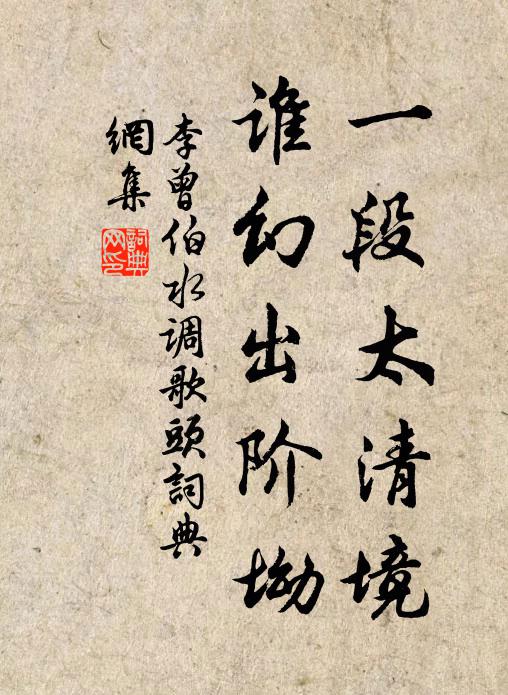 一段太清境
谁幻出阶坳
李曾伯水调歌頭詞典
網集
詞典
网印